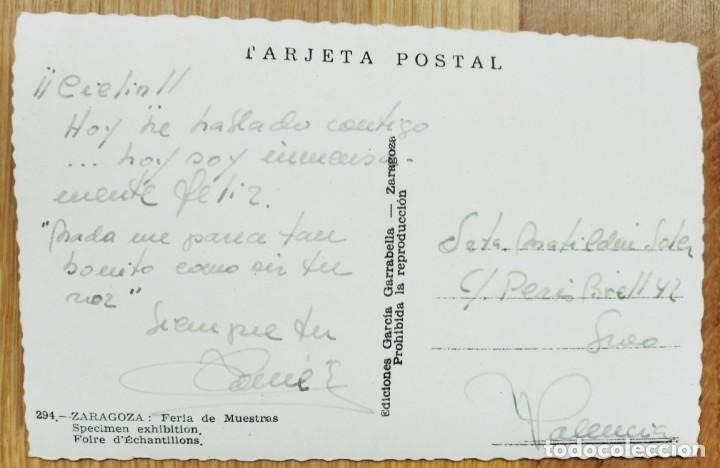 TARJETA POSTAL
¡¡Cielin!!
Hoy he hablado contigo
... hoy soy inmensa-
mente feliz.
"Nada me parece tan
bonito como oir tu
voz"
Siempre tu
Ediciones García Garrabella — Zaragoza
Prohibida la reproducción
Srta. Matildin Soler
C/. Peris 42
Sueca
Valencia
294.- ZARAGOZA: Feria de Muestras
Specimen exhibition.
Foire d'Échantillons.
todocoleccion